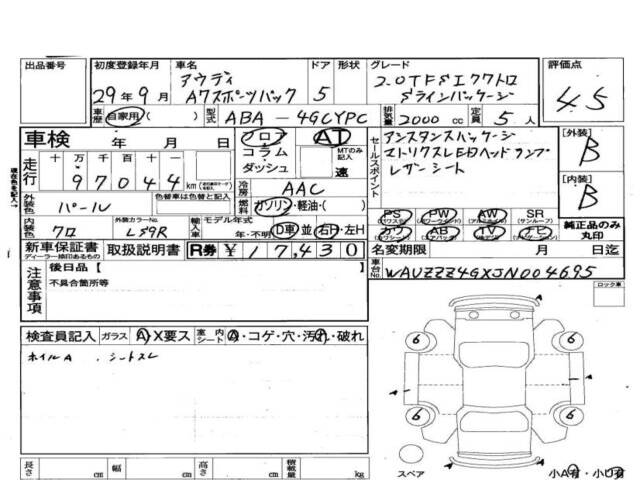 出品番号
初度登録年月
29年9月
車名
アウディ
A7スポーツバック
ドア
5
形状
グレード
2.0TFSIクワトロ
Sラインパッケージ
評価点
4.5
車歴 自家用 ( )
型式 ABA-4GCYPC
排気量 2000 cc
定員 5人
車検 年 月 日
フロア
コラム
ダッシュ
AT
MTのみ記入
速
セールスポイント
アシスタンスパッケージ
マトリクスLEDヘッドランプ
レザーシート
[外装]
B
[内装]
B
走行
十 万 千 百 十 一
97044 km
冷房 AAC
燃料 ガソリン・軽油・( )
外装色 パール
色替車は色替と記入
外装カラーNo.
LS9R
内装色 クロ
輸入車 モデル年式
年・不明
D車 並 右H・左H
PS PW AW SR
(サンルーフ)
カワ AB TV ナビ
純正品のみ
丸印
新車保証書
ディーラー捺印あるもの
取扱説明書
R券 ¥17,430
名変期限 月 日迄
車台No. WAUZZZ4GXJN004695
注意事項
後日品【
不具合箇所等
ロック車
検査員記入 ガラス A・X要ス 室内シート A・コゲ・穴・汚れ・破れ
ホイルA . シートスレ
6 6
6 6
A
A
A
長さ cm 幅 cm 高さ cm 積載量 kg
スペア
小A有・小U有